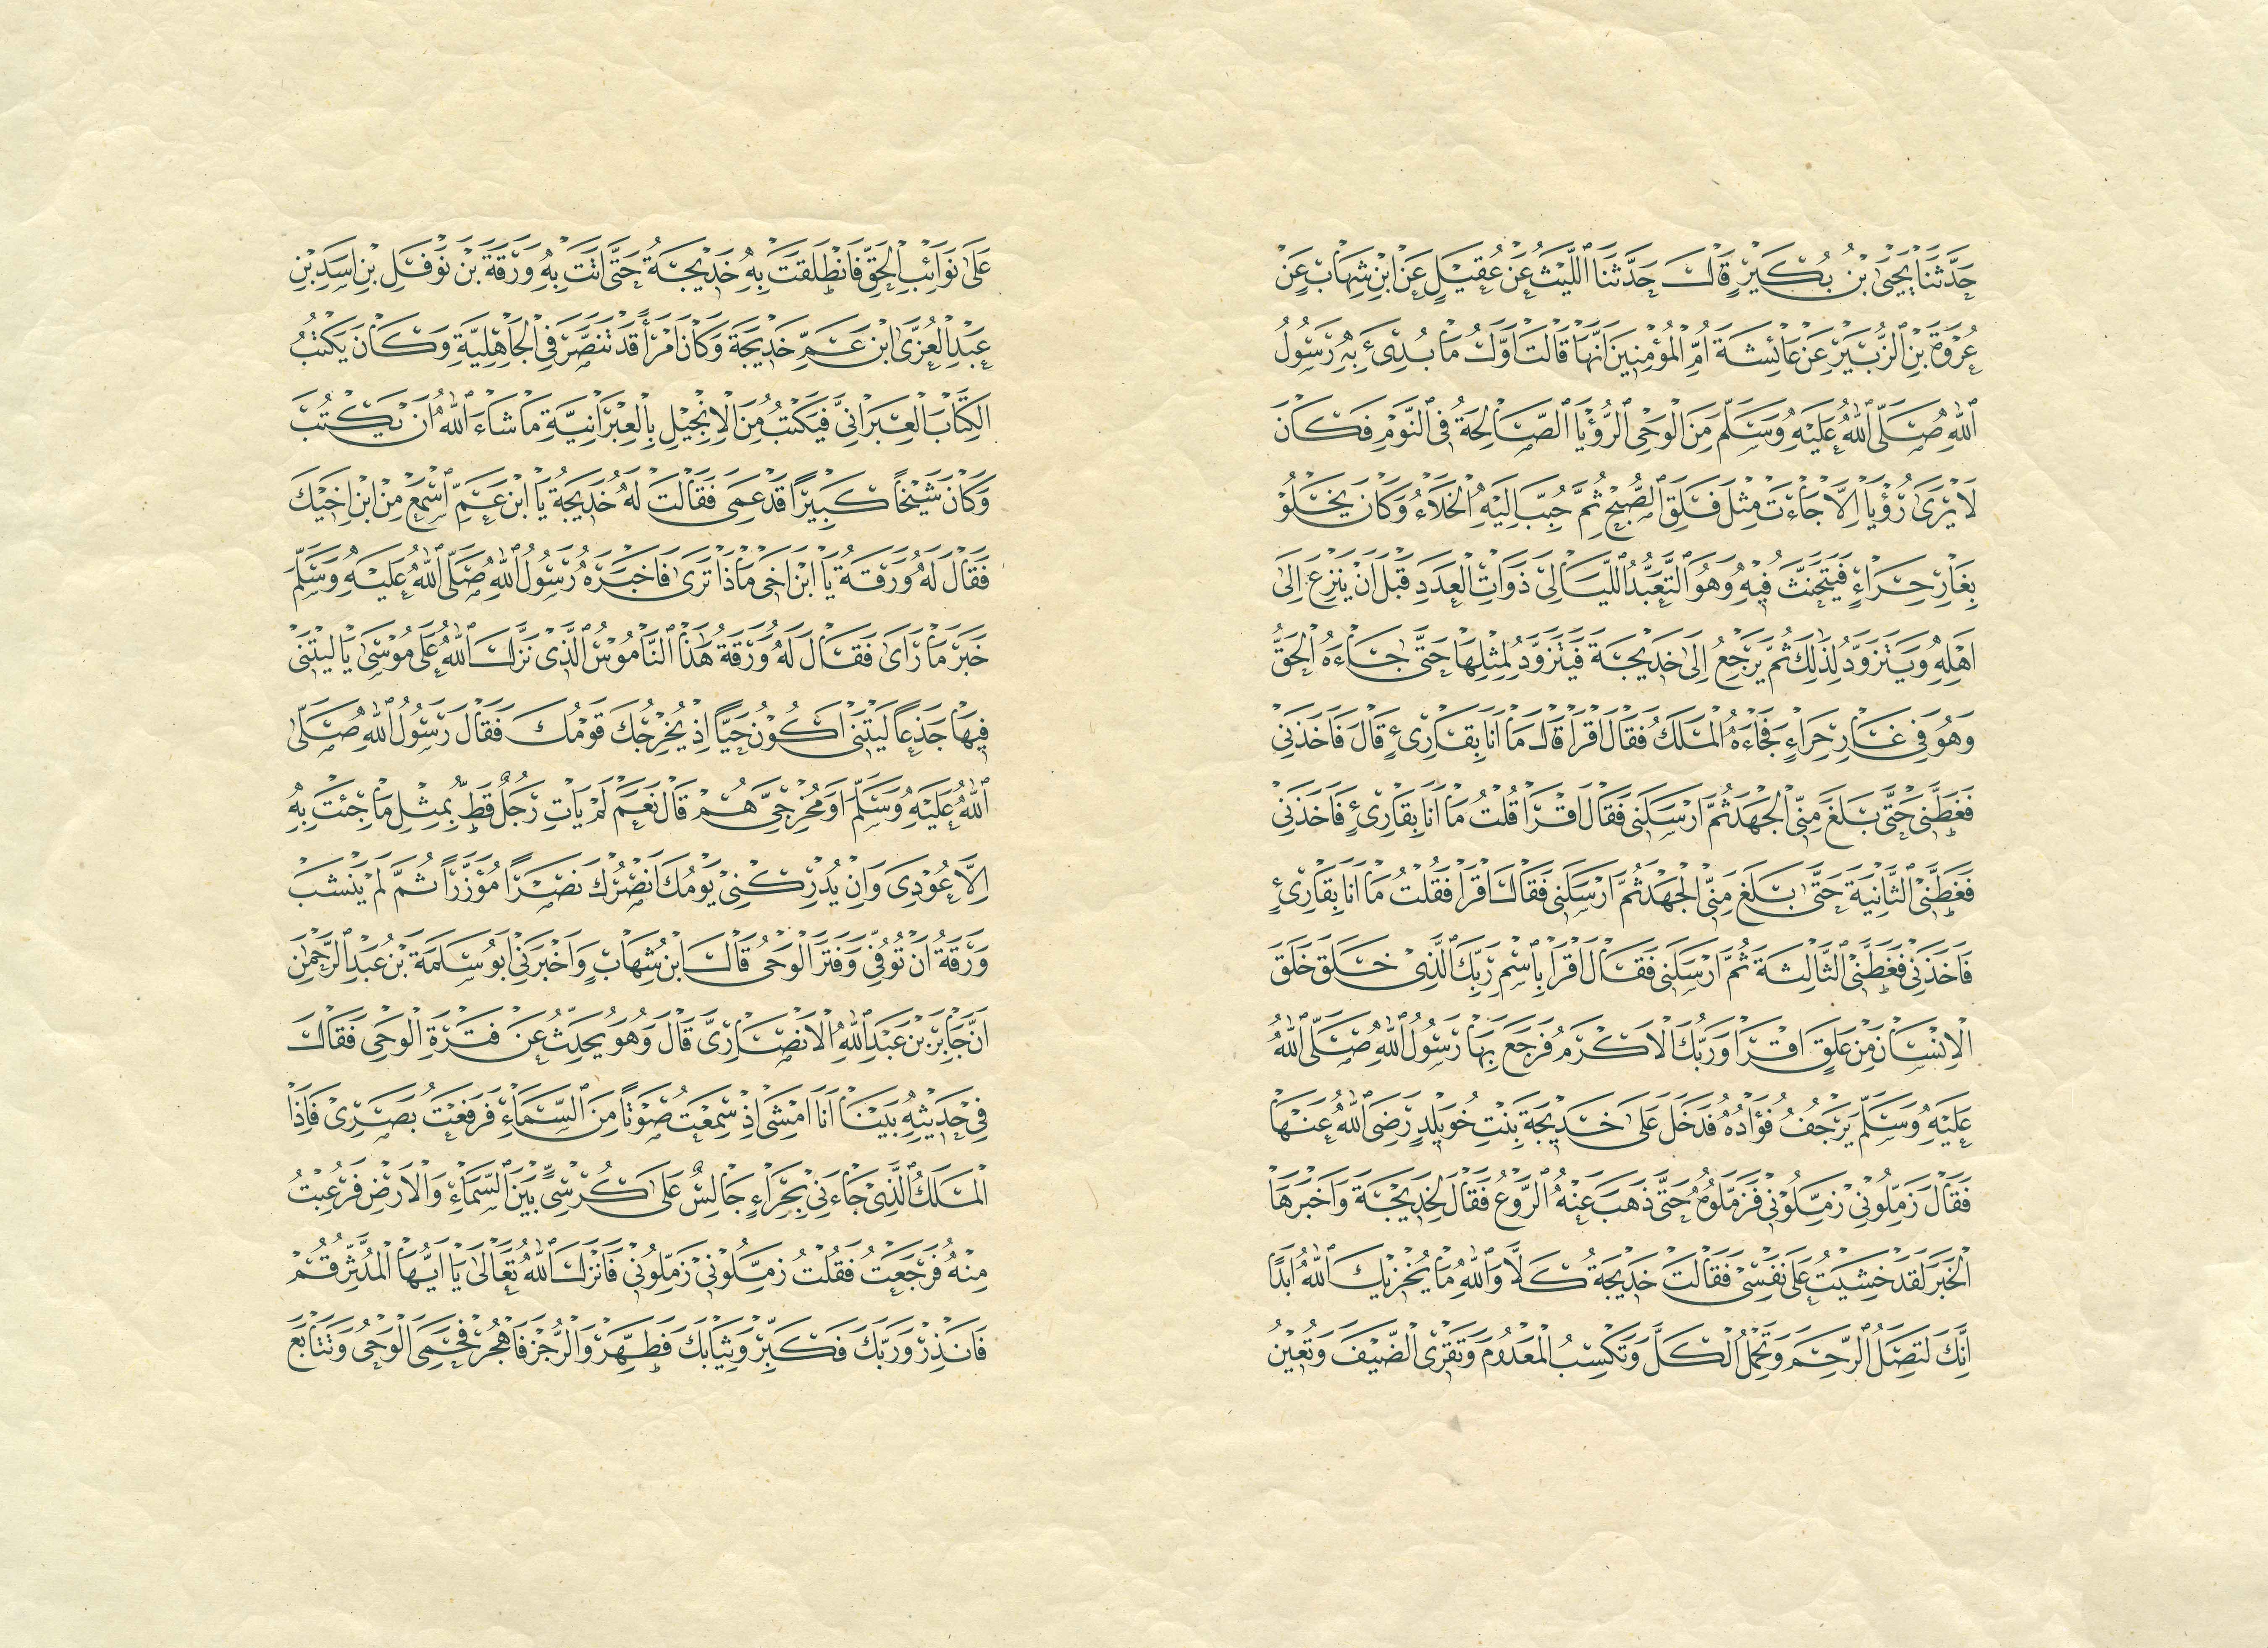 حَدَّثَنَا يَحْيَى بْنُ بُكَيْرٍ قَالَ حَدَّثَنَا اللَّيْثُ عَنْ عُقَيْلٍ عَنِ ابْنِ شِهَابٍ عَنْ
عُرْوَةَ بْنِ الزُّبَيْرِ عَنْ عَائِشَةَ اُمِّ الْمُؤْمِنِينَ اَنَّهَا قَالَتْ اَوَّلُ مَا بُدِئَ بِهِ رَسُولُ
اللهِ صَلَّى اللهُ عَلَيْهِ وَسَلَّمَ مِنَ الْوَحْىِ الرُّؤْيَا الصَّالِحَةُ فِى النَّوْمِ فَكَانَ
لَا يَرَى رُؤْيَا اِلَّا جَاءَتْ مِثْلَ فَلَقِ الصُّبْحِ ثُمَّ حُبِّبَ اِلَيْهِ الْخَلَاءُ وَكَانَ يَخْلُوْ
بِغَارِ حِرَاءٍ فَيَتَحَنَّثُ فِيْهِ وَهُوَ التَّعَبُّدُ اللَّيَالِىَ ذَوَاتِ الْعَدَدِ قَبْلَ اَنْ يَنْزِعَ اِلَى
اَهْلِهِ وَيَتَزَوَّدُ لِذٰلِكَ ثُمَّ يَرْجِعُ اِلَى خَدِيْجَةَ فَيَتَزَوَّدُ لِمِثْلِهَا حَتَّى جَاءَهُ الْحَقُّ
وَهُوَ فِى غَارِ حِرَاءٍ فَجَاءَهُ الْمَلَكُ فَقَالَ اقْرَأْ قَالَ مَا اَنَا بِقَارِئٍ قَالَ فَاَخَذَنِىْ
فَغَطَّنِىْ حَتَّى بَلَغَ مِنِّى الْجَهْدَ ثُمَّ اَرْسَلَنِى فَقَالَ اقْرَأْ قُلْتُ مَا اَنَا بِقَارِئٍ فَاَخَذَنِىْ
فَغَطَّنِىْ الثَّانِيَةَ حَتَّى بَلَغَ مِنِّى الْجَهْدَ ثُمَّ اَرْسَلَنِى فَقَالَ اقْرَأْ فَقُلْتُ مَا اَنَا بِقَارِئٍ
فَاَخَذَنِى فَغَطَّنِىْ الثَّالِثَةَ ثُمَّ اَرْسَلَنِى فَقَالَ اقْرَأْ بِاسْمِ رَبِّكَ الَّذِىْ خَلَقَ خَلَقَ
الْاِنْسَانَ مِنْ عَلَقٍ اقْرَأْ وَرَبُّكَ الْاَكْرَمُ فَرَجَعَ بِهَا رَسُولُ اللهِ صَلَّى اللهُ
عَلَيْهِ وَسَلَّمَ يَرْجُفُ فُؤَادُهُ فَدَخَلَ عَلَى خَدِيْجَةَ بِنْتِ خُوَيْلِدٍ رَضِىَ اللهُ عَنْهَا
فَقَالَ زَمِّلُوْنِىْ زَمِّلُوْنِىْ فَزَمَّلُوْهُ حَتَّى ذَهَبَ عَنْهُ الرَّوْعُ فَقَالَ لِخَدِيْجَةَ وَاَخْبَرَهَا
الْخَبَرَ لَقَدْ خَشِيْتُ عَلَى نَفْسِىْ فَقَالَتْ خَدِيْجَةُ كَلَّا وَاللهِ مَا يُخْزِيْكَ اللهُ اَبَدًا
اِنَّكَ لَتَصِلُ الرَّحِمَ وَتَحْمِلُ الْكَلَّ وَتَكْسِبُ الْمَعْدُوْمَ وَتَقْرِى الضَّيْفَ وَتُعِيْنُ
عَلَى نَوَائِبِ الْحَقِّ فَانْطَلَقَتْ بِهِ خَدِيْجَةُ حَتَّى اَتَتْ بِهِ وَرَقَةَ بْنَ نَوْفَلِ بْنِ اَسَدِ بْنِ
عَبْدِ الْعُزَّى ابْنَ عَمِّ خَدِيْجَةَ وَكَانَ امْرَأً قَدْ تَنَصَّرَ فِى الْجَاهِلِيَّةِ وَكَانَ يَكْتُبُ
الْكِتَابَ الْعِبْرَانِىَّ فَيَكْتُبُ مِنَ الْاِنْجِيْلِ بِالْعِبْرَانِيَّةِ مَا شَاءَ اللهُ اَنْ يَكْتُبَ
وَكَانَ شَيْخًا كَبِيْرًا قَدْ عَمِىَ فَقَالَتْ لَهُ خَدِيْجَةُ يَا ابْنَ عَمِّ اسْمَعْ مِنْ ابْنِ اَخِيْكَ
فَقَالَ لَهُ وَرَقَةُ يَا ابْنَ اَخِى مَاذَا تَرَى فَاَخْبَرَهُ رَسُوْلُ اللهِ صَلَّى اللهُ عَلَيْهِ وَسَلَّمَ
خَبَرَ مَا رَاَى فَقَالَ لَهُ وَرَقَةُ هٰذَا النَّامُوْسُ الَّذِىْ نَزَّلَ اللهُ عَلَى مُوْسَى يَا لَيْتَنِىْ
فِيْهَا جَذَعًا لَيْتَنِىْ اَكُوْنُ حَيًّا اِذْ يُخْرِجُكَ قَوْمُكَ فَقَالَ رَسُوْلُ اللهِ صَلَّى
اللهُ عَلَيْهِ وَسَلَّمَ اَوَمُخْرِجِىَّ هُمْ قَالَ نَعَمْ لَمْ يَأْتِ رَجُلٌ قَطُّ بِمِثْلِ مَا جِئْتَ بِهِ
اِلَّا عُوْدِىَ وَاِنْ يُدْرِكْنِىْ يَوْمُكَ اَنْصُرْكَ نَصْرًا مُؤَزَّرًا ثُمَّ لَمْ يَنْشَبْ
وَرَقَةُ اَنْ تُوُفِّىَ وَفَتَرَ الْوَحْىُ قَالَ ابْنُ شِهَابٍ وَاَخْبَرَنِىْ اَبُو سَلَمَةَ بْنُ عَبْدِ الرَّحْمٰنِ
اَنَّ جَابِرَ بْنَ عَبْدِ اللهِ الْاَنْصَارِىَّ قَالَ وَهُوَ يُحَدِّثُ عَنْ فَتْرَةِ الْوَحْىِ فَقَالَ
فِىْ حَدِيْثِهِ بَيْنَا اَنَا اَمْشِىْ اِذْ سَمِعْتُ صَوْتًا مِنَ السَّمَاءِ فَرَفَعْتُ بَصَرِىْ فَاِذَا
الْمَلَكُ الَّذِىْ جَاءَنِىْ بِحِرَاءٍ جَالِسٌ عَلَى كُرْسِىٍّ بَيْنَ السَّمَاءِ وَالْاَرْضِ فَرُعِبْتُ
مِنْهُ فَرَجَعْتُ فَقُلْتُ زَمِّلُوْنِىْ زَمِّلُوْنِىْ فَاَنْزَلَ اللهُ تَعَالَى يَا اَيُّهَا الْمُدَّثِّرُ قُمْ
فَاَنْذِرْ وَرَبَّكَ فَكَبِّرْ وَثِيَابَكَ فَطَهِّرْ وَالرُّجْزَ فَاهْجُرْ فَحَمِىَ الْوَحْىُ وَتَتَابَعَ